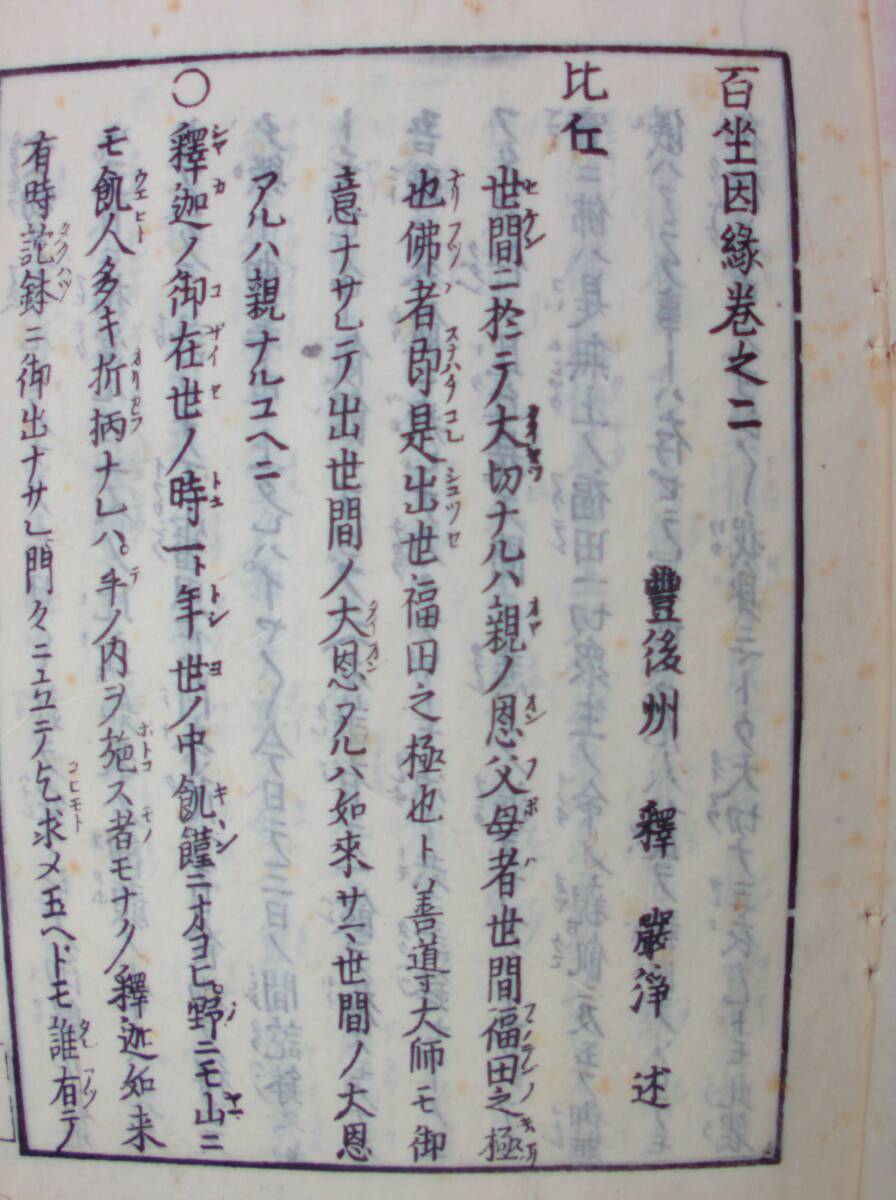 百坐因縁巻之二
豐後州 釋 嚴淨 述
比仏
世間ニ於ニテノ大切ナルハ親ノ恩父母者世間福田之極
也佛者即是出世福田之極也トハ善導大師モ御
意ナサレニテ出世間ノ大恩アルハ如來サマ世間ノ大恩
アルハ親ナルユヘニ
〇釋迦ノ御在世ノ時一ト年世ノ中飢饉ニオヨヒ。野ニモ山ニ
モ飢人多キ折柄ナレハ。手ノ内ヲ施ス者モナクノ釋迦如来
有時託鉢ニ御出ナサレ門々ニユニテ乞求メ玉ヘドモ誰有テノ